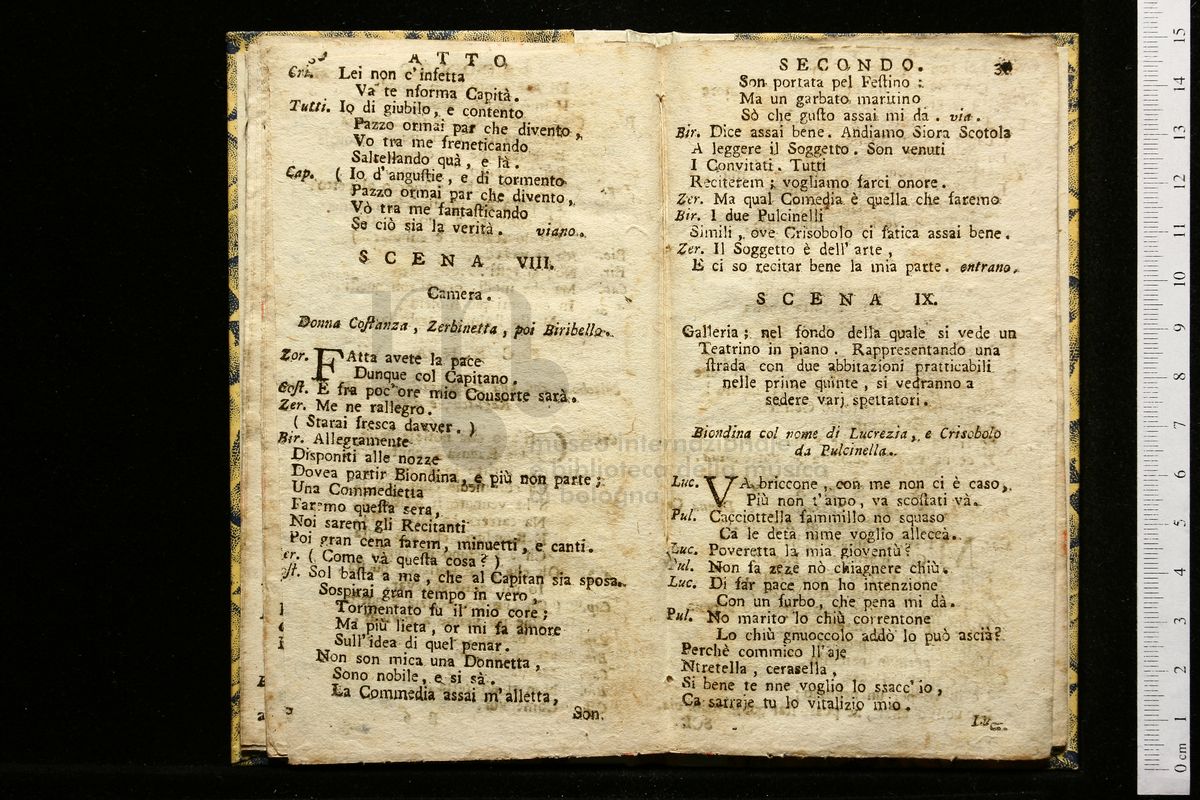 ATTO
Cri. Lei non c'infetta
Va te nforma Capità.
Tutti. Io di giubilo, e contento
Pazzo ormai par che divento,
Vo tra me freneticando
Saltellando quà, e là.
Cap. ( Io d'angustie, e di tormento
Pazzo ormai par che divento,
Vò tra me fantasticando
Se ciò sia la verità. viano.
SCENA VIII.
Camera.
Donna Costanza, Zerbinetta, poi Biribella.
Zer. FAtta avete la pace
Dunque col Capitano.
Cost. E fra poc'ore mio Consorte sarà.
Zer. Me ne rallegro.
( Starai fresca davver. )
Bir. Allegramente
Disponiti alle nozze
Dovea partir Biondina, e più non parte;
Una Commedietta
Faremo questa sera,
Noi sarem gli Recitanti
Poi gran cena farem, minuetti, e canti.
er. ( Come và questa cosa? )
ost. Sol basta a me, che al Capitan sia sposa.
Sospirai gran tempo in vero,
Tormentato fu il mio core;
Ma più lieta, or mi fa amore
Sull'idea di quel penar.
Non son mica una Donnetta,
Sono nobile, e si sà.
La Commedia assai m'alletta,
Son
SECONDO.
Son portata pel Festino:
Ma un garbato maritino
Sò che gusto assai mi da. via.
Bir. Dice assai bene. Andiamo Siora Scotola
A leggere il Soggetto. Son venuti
I Convitati. Tutti
Reciterem; vogliamo farci onore.
Zer. Ma qual Comedia è quella che faremo
Bir. I due Pulcinelli
Simili, ove Crisobolo ci fatica assai bene.
Zer. Il Soggetto è dell'arte,
E ci so recitar bene la mia parte. entrano.
SCENA IX.
Galleria; nel fondo della quale si vede un
Teatrino in piano. Rappresentando una
strada con due abbitazioni pratticabili
nelle prime quinte, si vedranno a
sedere varj spettatori.
Biondina col nome di Lucrezia, e Crisobolo
da Pulcinella.
Luc. VA briccone, con me non ci è caso,
Più non t'amo, va scostati và.
Pul. Cacciottella fammillo no squaso
Ca le deta nime voglio alleccà.
Luc. Poveretta la mia gioventù?
Pul. Non fa zeze nò chiagnere chiù.
Luc. Di far pace non ho intenzione
Con un furbo, che pena mi dà.
Pul. No marito lo chiù correntone
Lo chiù gnuoccolo addò lo può ascià?
Perchè commico ll'aje
Ntretella, cerasella,
Si bene te nne voglio lo ssacc'io,
Ca sarraje tu lo vitalizio mio.
museo internazionale
e biblioteca della musica
di bologna
15
14
13
12
11
10
9
8
7
6
5
4
3
2
1
0 cm